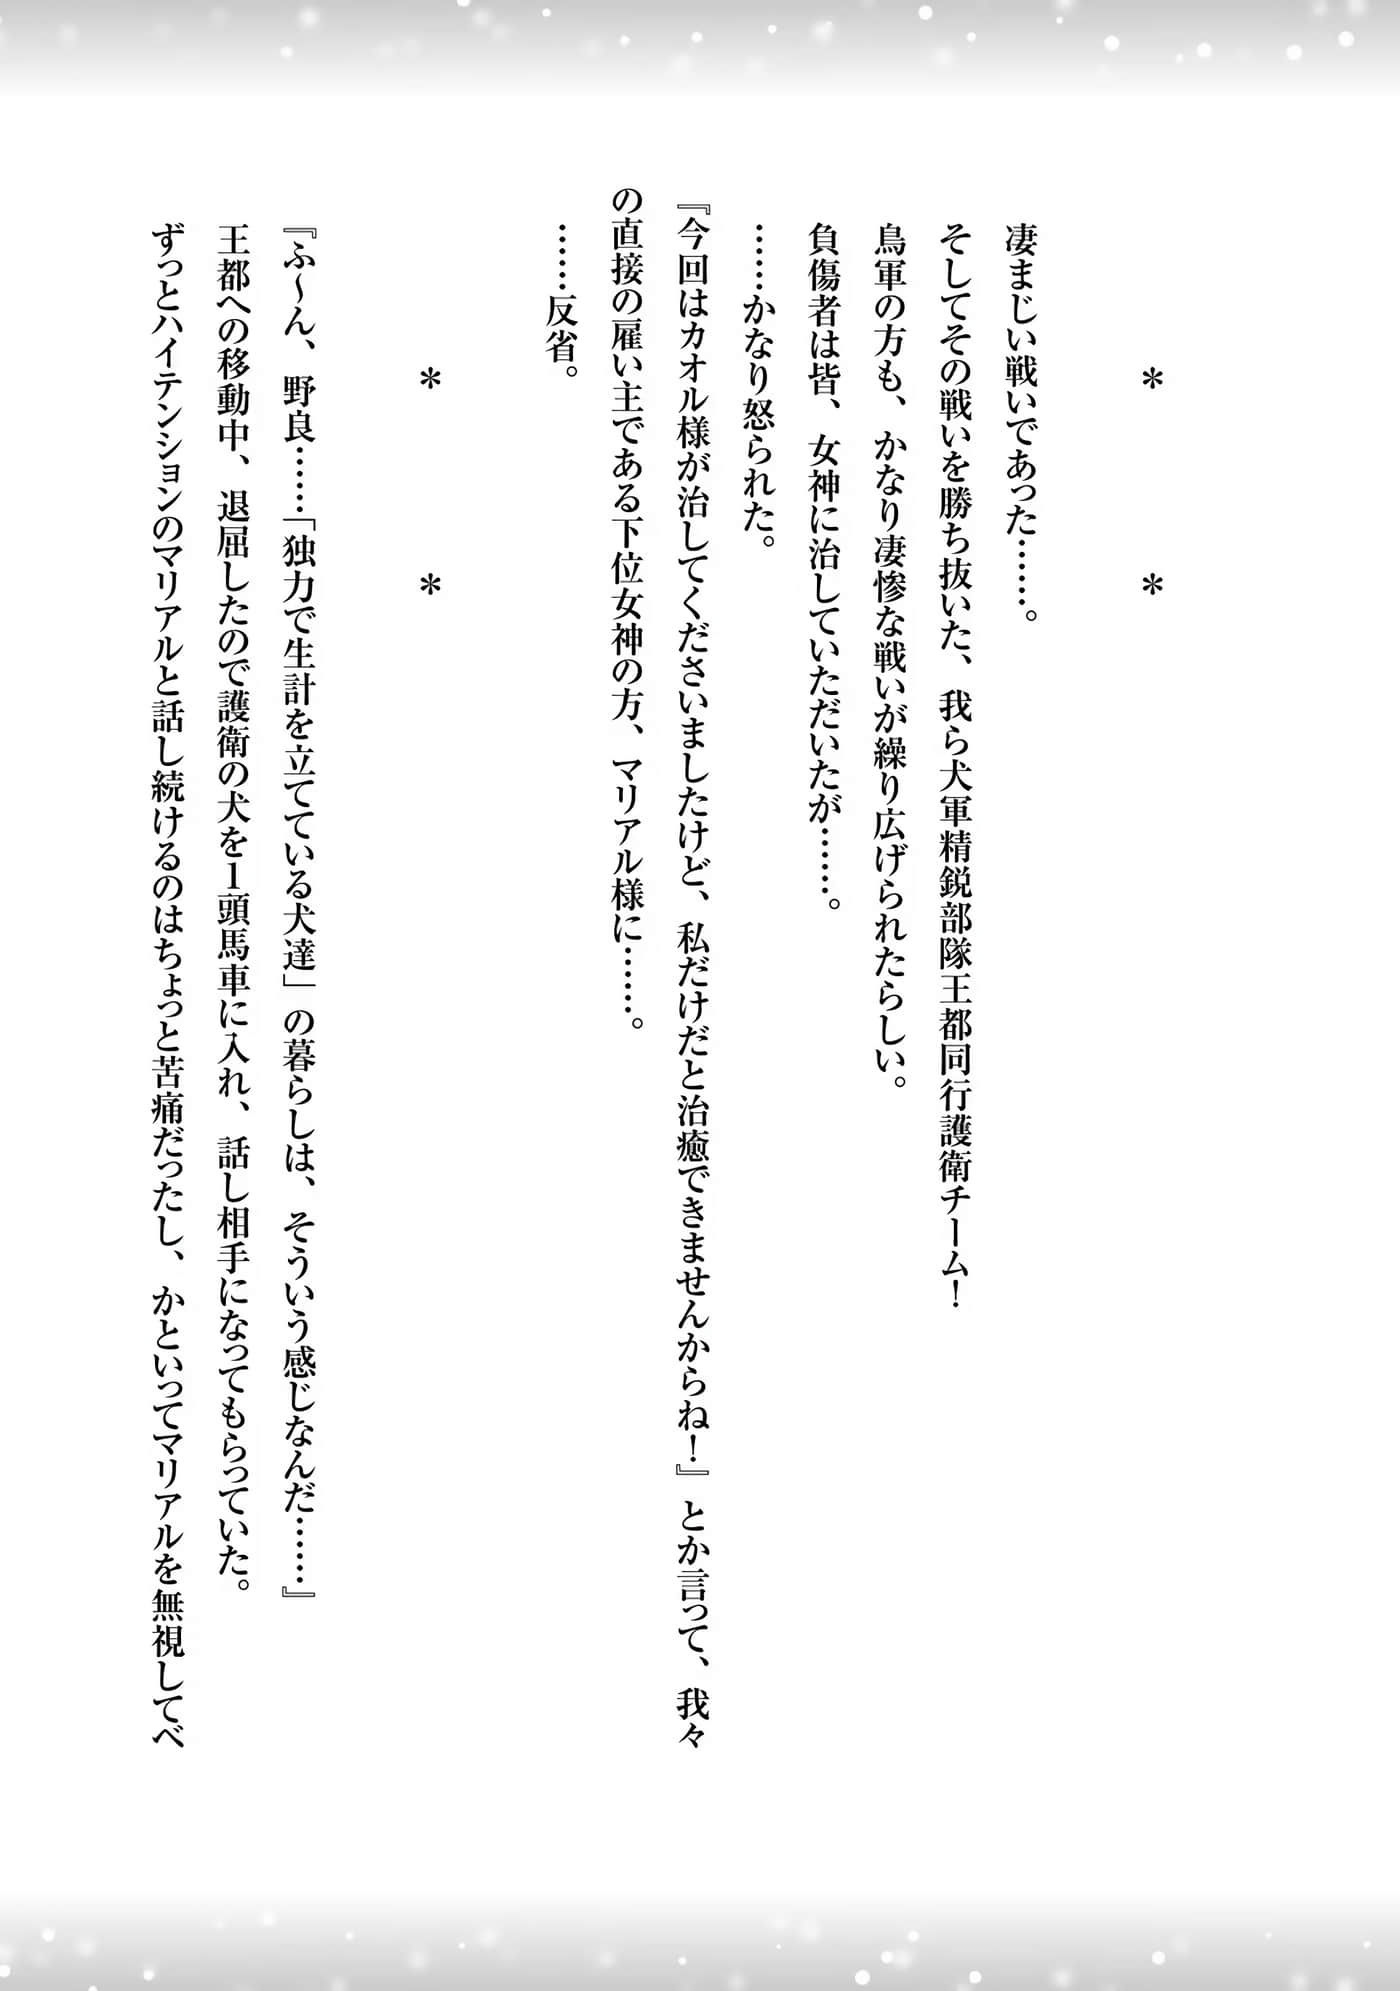 ＊　＊
凄まじい戦いであった……。
そしてその戦いを勝ち抜いた、我ら犬軍精鋭部隊王都同行護衛チーム！
鳥軍の方も、かなり凄惨な戦いが繰り広げられたらしい。
負傷者は皆、女神に治していただいたが……。
……かなり怒られた。
『今回はカオル様が治してくださいましたけど、私だけだと治癒できませんからね！』とか言って、我々
の直接の雇い主である下位女神の方、マリアル様に……。
……反省。
＊　＊
『ふ～ん、野良……「独力で生計を立てている犬達」の暮らしは、そういう感じなんだ……』
王都への移動中、退屈したので護衛の犬を１頭馬車に入れ、話し相手になってもらっていた。
ずっとハイテンションのマリアルと話し続けるのはちょっと苦痛だったし、かといってマリアルを無視してべ